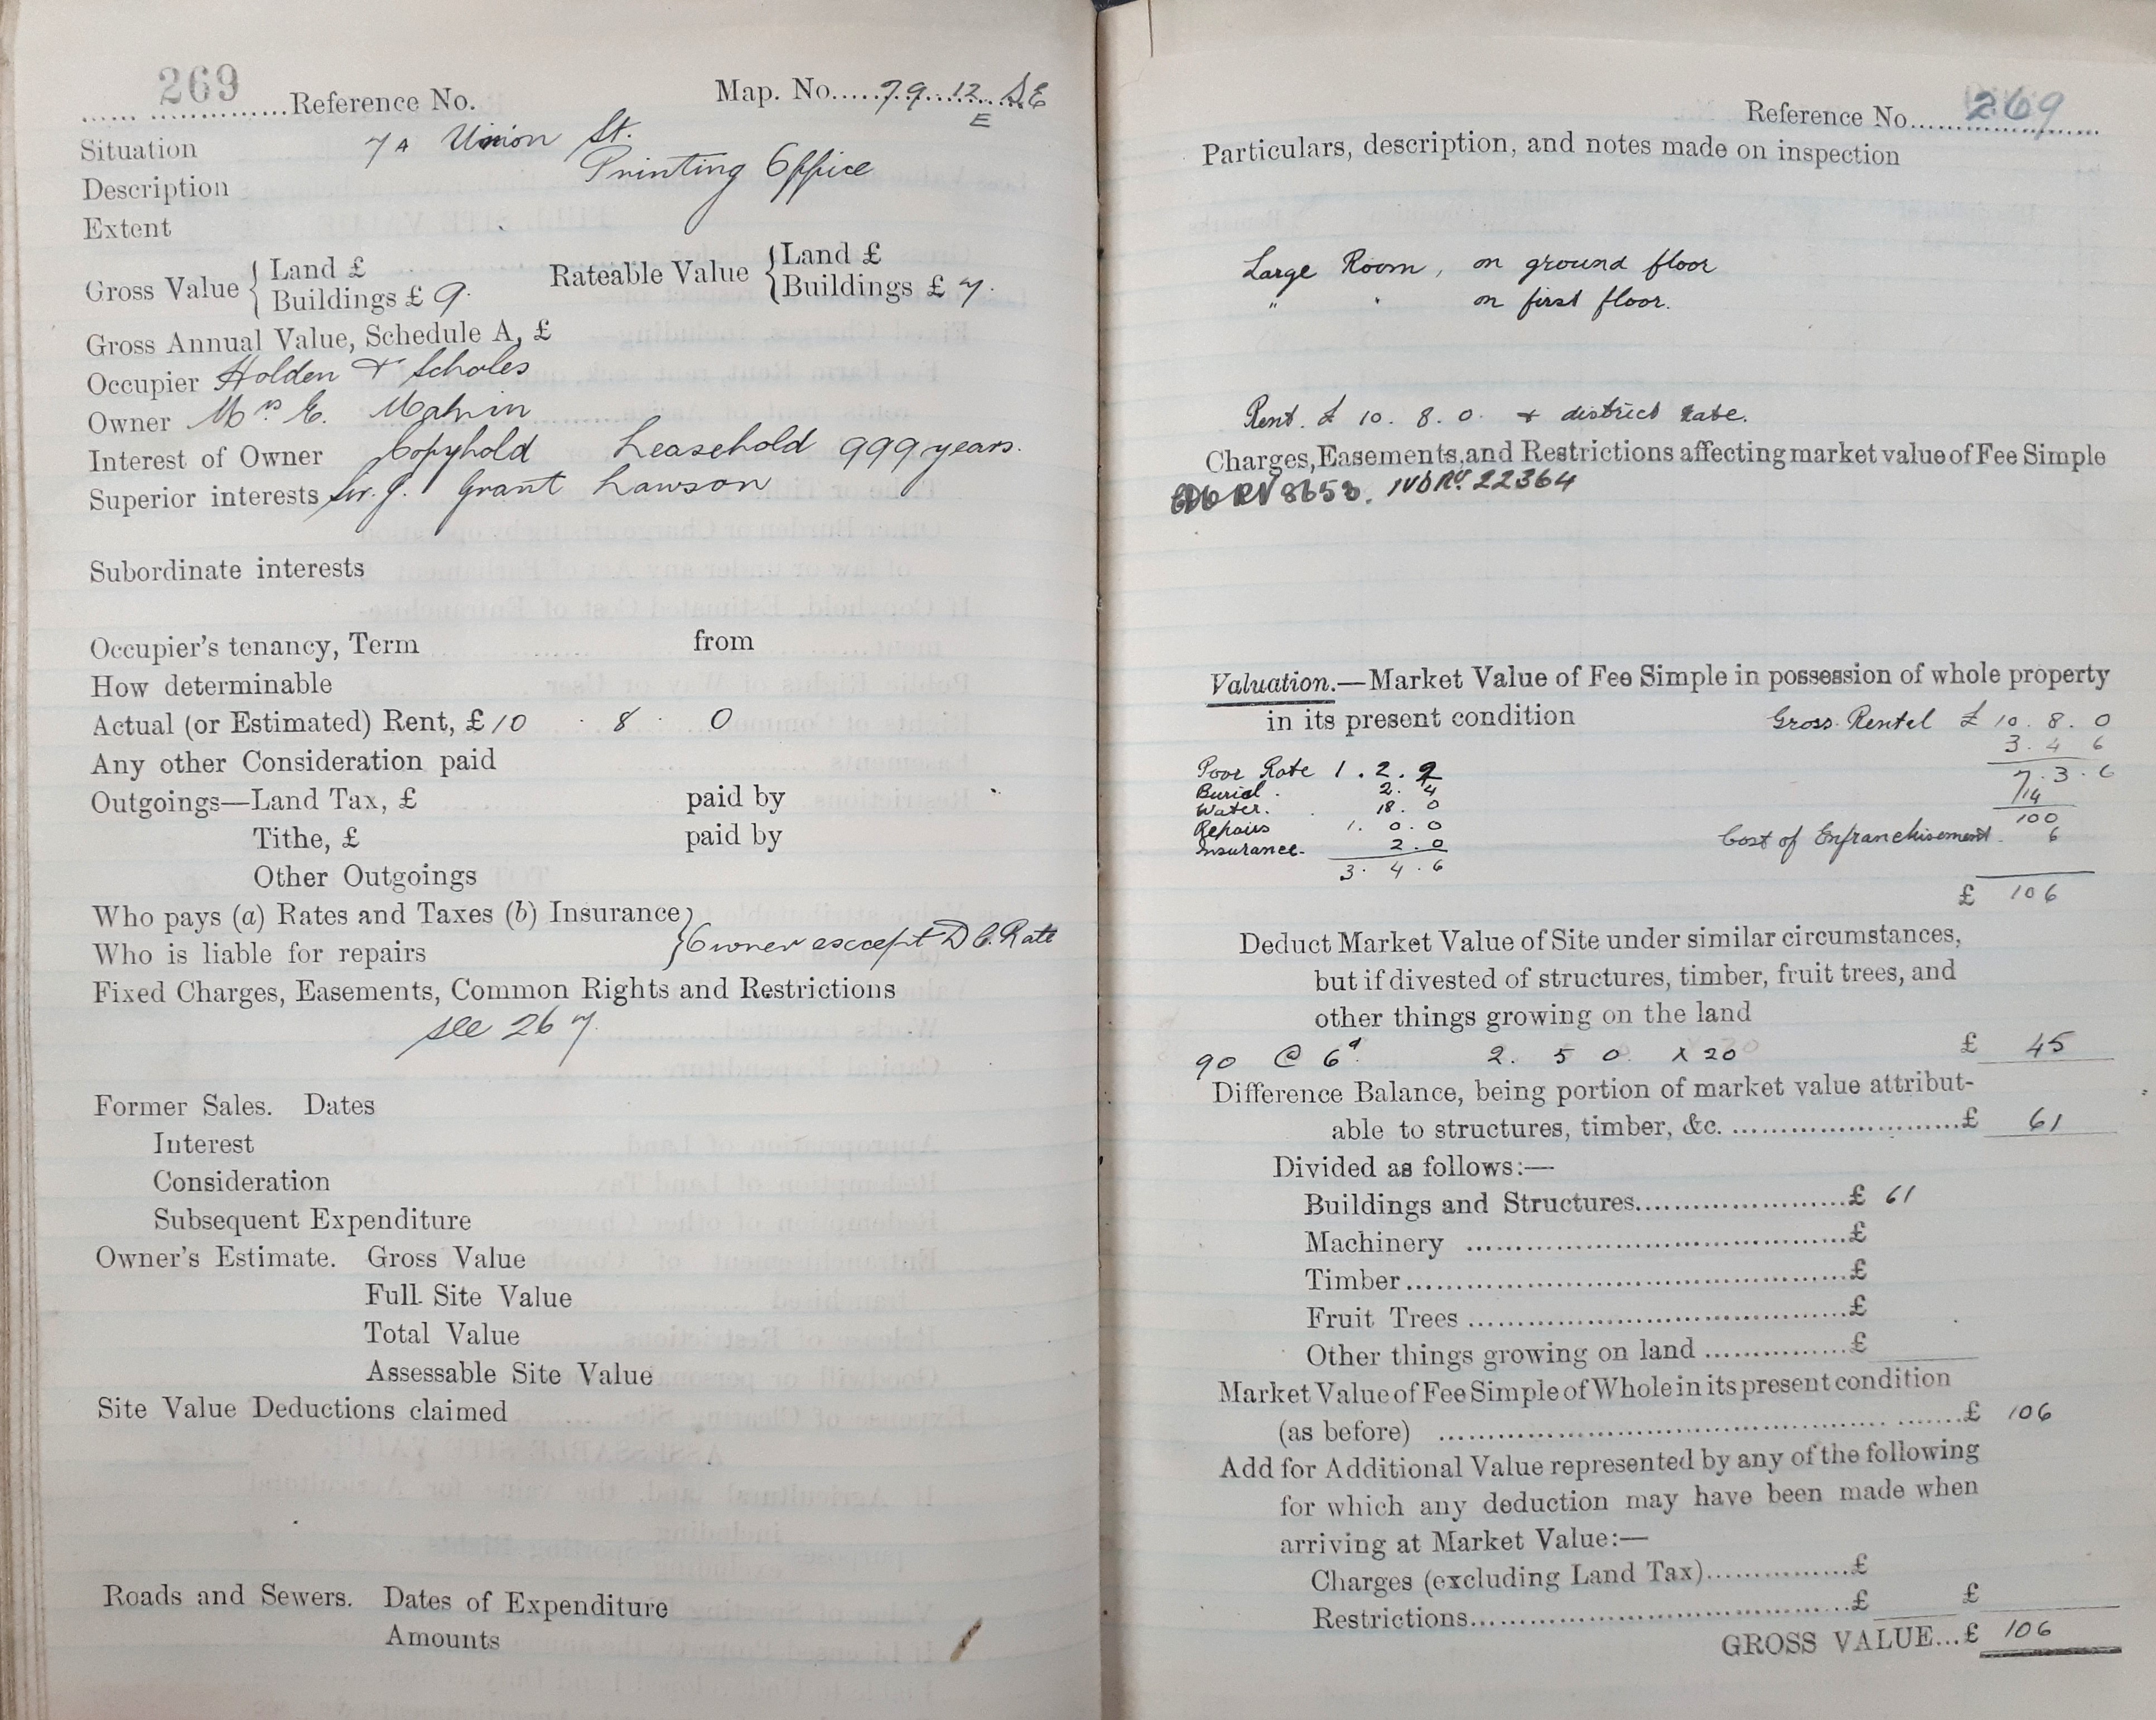 269 Reference No. Map. No. 79. 12 S.E
E
Situation 7A Union St.
Description Printing Office
Extent
Gross Value { Land £ Rateable Value { Land £
Buildings £ 9. Buildings £ 7.
Gross Annual Value, Schedule A, £
Occupier Holden & Scholes
Owner Mrs E.
Interest of Owner Copyhold Leasehold 999 years.
Superior interests Sir. J. Grant Lawson
Subordinate interests
Occupier's tenancy, Term from
How determinable
Actual (or Estimated) Rent, £ 10 . 8 . 0
Any other Consideration paid
Outgoings—Land Tax, £ paid by
Tithe, £ paid by
Other Outgoings
Who pays (a) Rates and Taxes (b) Insurance }
Who is liable for repairs } Owner except D C. Rate
Fixed Charges, Easements, Common Rights and Restrictions
see 267.
Former Sales. Dates
Interest
Consideration
Subsequent Expenditure
Owner's Estimate. Gross Value
Full Site Value
Total Value
Assessable Site Value
Site Value Deductions claimed
Roads and Sewers. Dates of Expenditure
Amounts
Reference No. 269
Particulars, description, and notes made on inspection
Large Room, on ground floor
" " on first floor.
Rent. £ 10. 8. 0. + district Rate.
Charges, Easements, and Restrictions affecting market value of Fee Simple
RV 8653. IVD Ro. 22364
Valuation.—Market Value of Fee Simple in possession of whole property
in its present condition Gross Rental £ 10. 8. 0
3. 4 6
Poor Rate 1. 2. 2 7. 3. 6
Burial. 2. 4 14
Water. 18. 0 100
Repairs 1. 0. 0 Cost of Enfranchisement. 6
Insurance. 2. 0
3. 4. 6
£ 106
Deduct Market Value of Site under similar circumstances,
but if divested of structures, timber, fruit trees, and
other things growing on the land
90 @ 6d 2. 5 0. x 20 £ 45
Difference Balance, being portion of market value attribut-
able to structures, timber, &c. £ 61
Divided as follows:—
Buildings and Structures £ 61
Machinery £
Timber £
Fruit Trees £
Other things growing on land £
Market Value of Fee Simple of Whole in its present condition
(as before) £ 106
Add for Additional Value represented by any of the following
for which any deduction may have been made when
arriving at Market Value:—
Charges (excluding Land Tax) £
Restrictions £ £
GROSS VALUE...£ 106